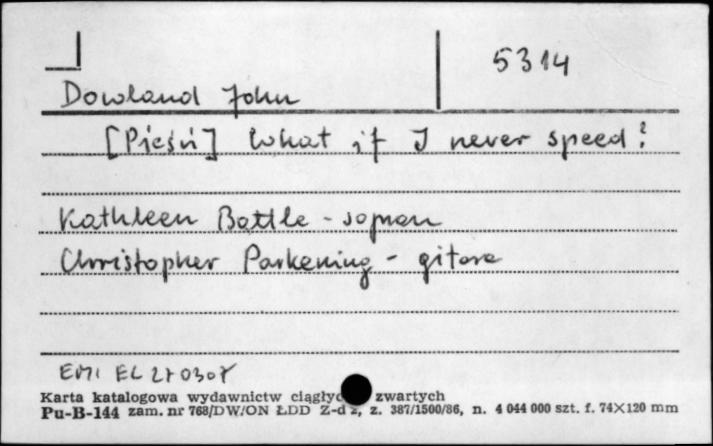 5314
Dowland John
[Pieśń] What if I never speed?
Kathleen Battle - sopran
Christopher Parkening - gitara
EMI EL
Karta katalogowa wydawnictw zwartych
Pu-B-144 zam. nr 768/DW/ON ŁDD z. 387/1500/86, n. 4 044 000 szt. f. 74X120 mm